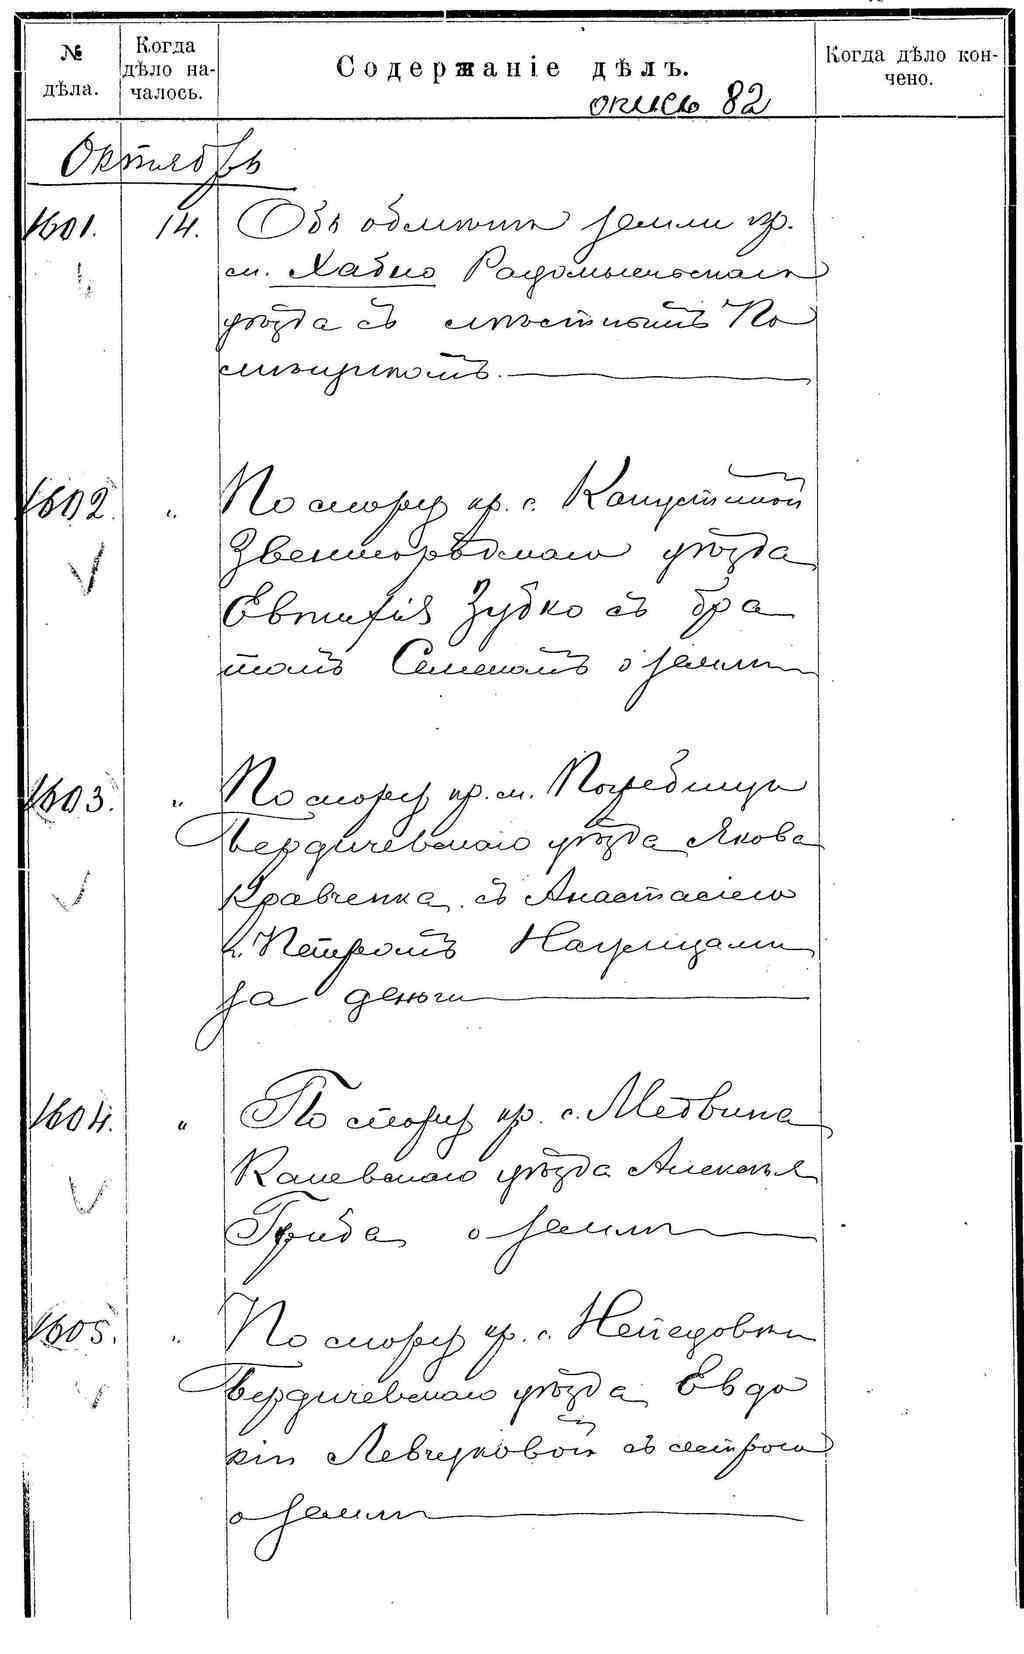 № дѣла.
Когда дѣло на-
чалось.
Содержаніе дѣлъ.
Когда дѣло кон-
чено.
опись 82
Октябрь
1601. 14. Объ обмѣнѣ земли кр.
м. Хабно Радомысльскаго
уѣзда съ мѣстнымъ По
мѣщикомъ.
1602. „ По спору кр. с. Капустиной
Звенигородскаго уѣзда
Евтихія Зубко съ бра
томъ Семеномъ о землѣ
1603. „ По спору кр. м. Погребищъ
Бердичевскаго уѣзда Якова
Кравченка съ Анастасіею
и Петромъ
за деньги
1604. „ По спору кр. с. Медвина
Каневскаго уѣзда Алексѣя
Гриба о землѣ
1605. „ По спору кр. с. Непедовки
Бердичевскаго уѣзда Евдо
кіи Левчуковой съ сестрою
о землѣ